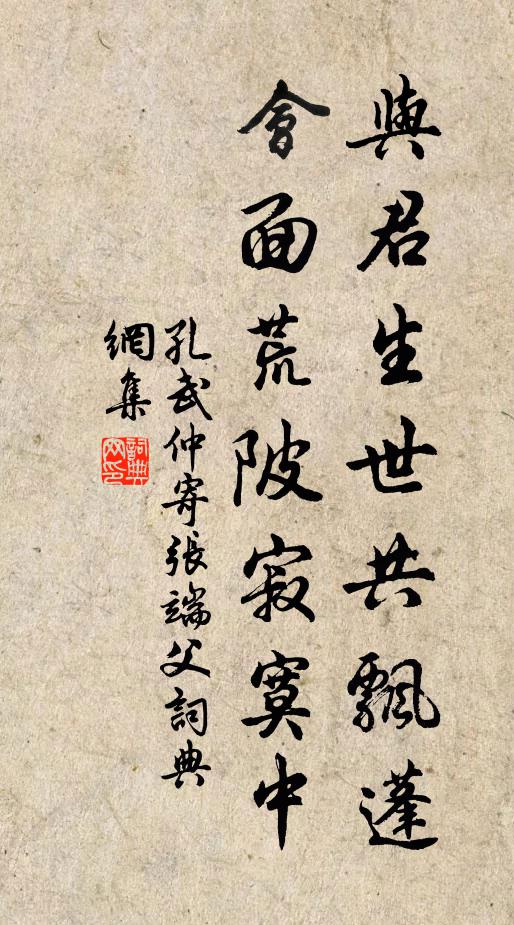 與君生世共飄蓬
會面荒陂寂寞中
孔武仲寄張端父詞典
網集
詞典網印